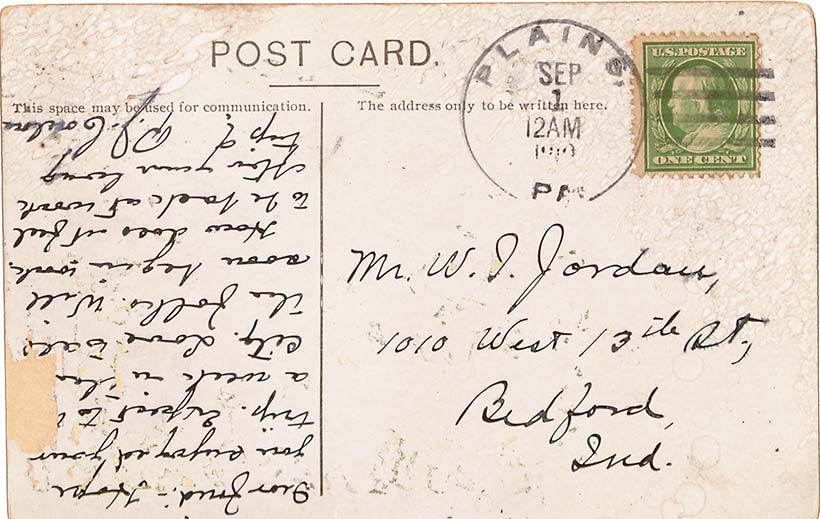 POST CARD.
This space may be used for communication.
The address only to be written here.
PLAINS,
SEP
1
12AM
PA
U.S. POSTAGE
ONE CENT
Mr. W. I. Jordan,
1010 West 13th St,
Bedford,
Ind.
Dear Friend:- Hope
you enjoyed your
trip. Expect to
a week in this
City.
the folks. Will
soon begin work.
How does it feel
to be back at work
your long
trip?